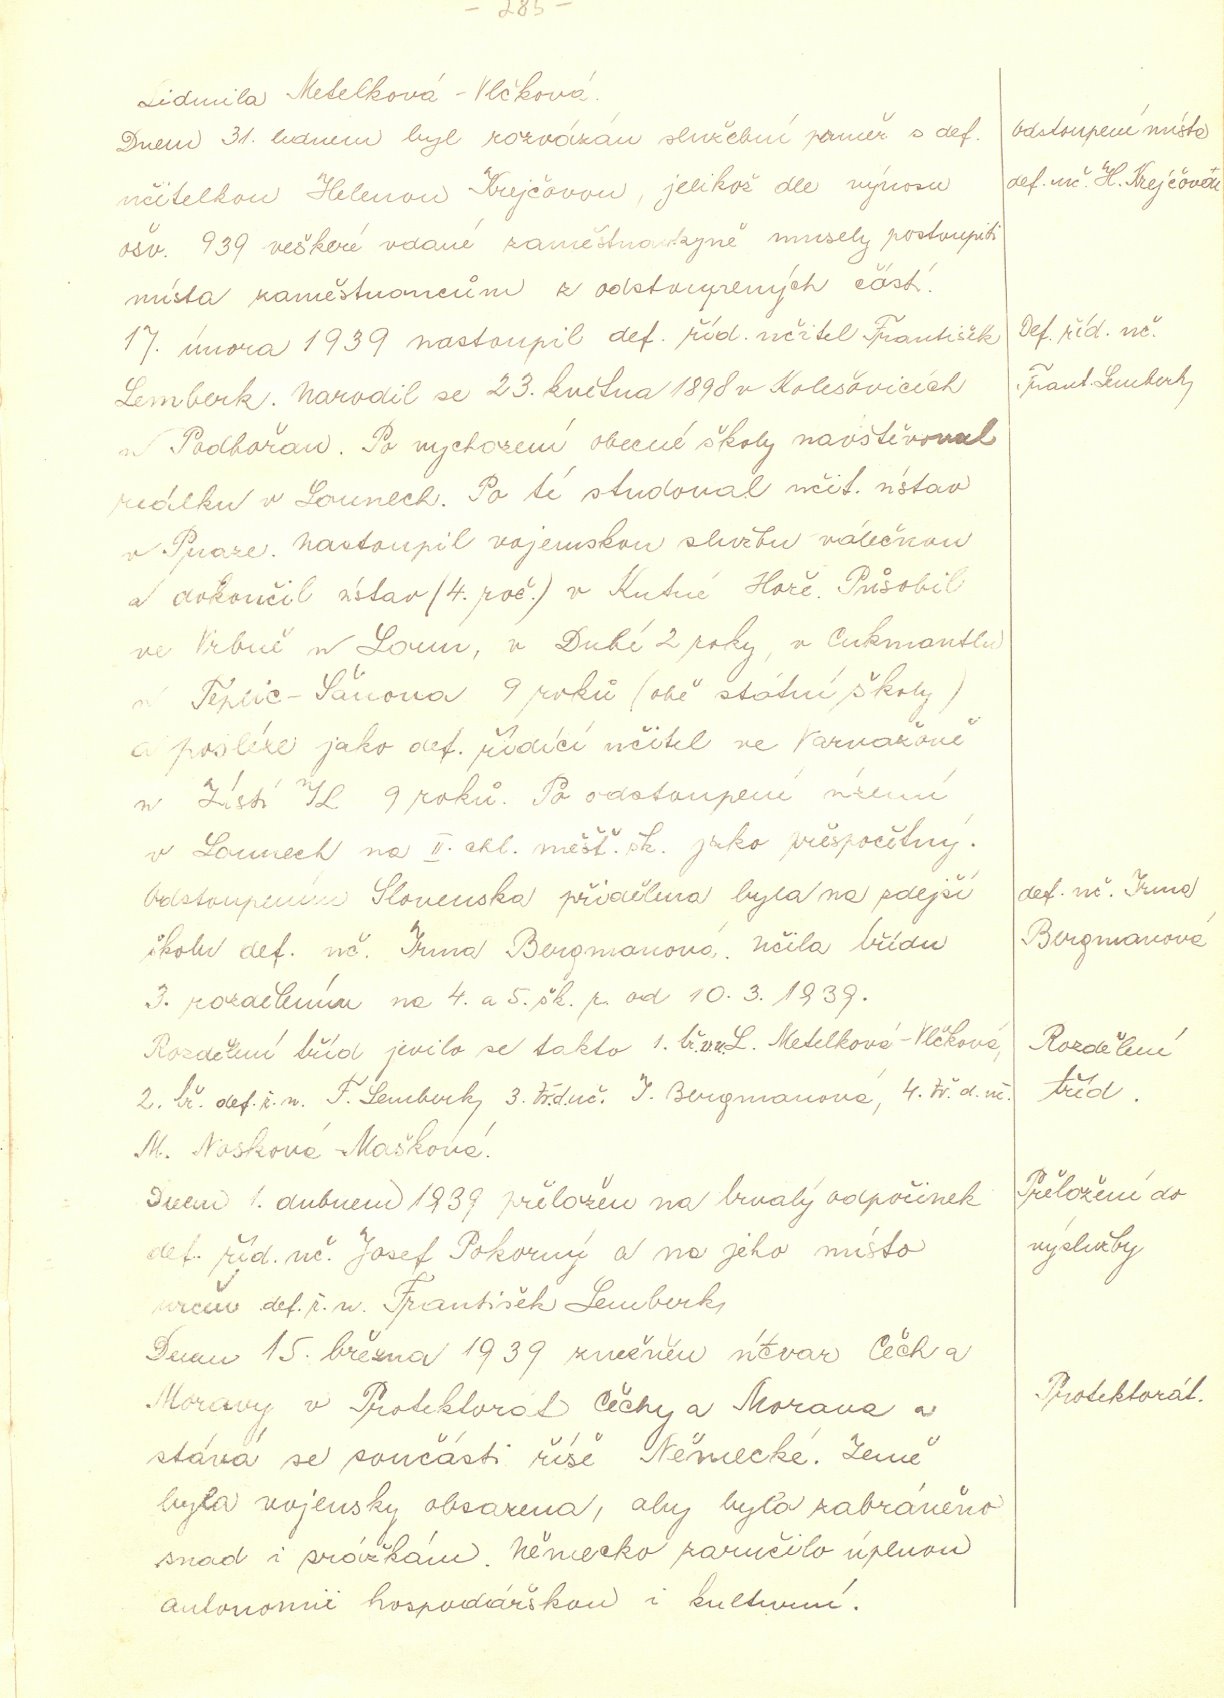 - 285 -
Lidmila Metelková - Vlčková.
Dnem 31. lednem byl rozvázán služební poměr s def.
odstoupení místa
učitelkou Helenou Krejčovou, jelikož dle výnosu
def. uč. H. Krejčové
ošv. 939 veškeré vdané zaměstnankyně musely postoupiti
místa zaměstnancům z odstoupených částí.
17. února 1939 nastoupil def. říd. učitel František
Def. říd. uč.
Lemberk. Narodil se 23. května 1898 v Kolešovicích
Frant. Lemberk
u Podbořan. Po vychození obecné školy navštěvoval
reálku v Lounech. Po té studoval učit. ústav
v Praze. Nastoupil vojenskou službu válečnou
a dokončil ústav (4. roč.) v Kutné Hoře. Působil
ve Vrbně u Loun, v Dubí 2 roky, v Cukmantlu
u Teplic - Šanova 9 roků (obě státní školy)
a posléze jako def. řídící učitel ve Varvažově
u Ústí n/L 9 roků. Po odstoupení území
v Lounech na II. chl. měšť. šk. jako přespočetný.
Odstoupením Slovenska přidělena byla na zdejší
def. uč. Irma
školu def. uč. Irma Bergmanová. Učila třídu
Bergmanová
3. rozdělením na 4. a 5. šk. r. od 10. 3. 1939.
Rozdělení tříd jevilo se takto 1. tř. L. Metelková - Vlčková,
Rozdělení
2. tř. def. ř. u. F. Lemberk, 3. tř. d. uč. I. Bergmanová, 4. tř. d. uč.
tříd.
M. Nosková - Mašková.
Dnem 1. dubnem 1939 přeložen na trvalý odpočinek
Přeložení do
def. říd. uč. Josef Pokorný a na jeho místo
výslužby
určen def. ř. u. František Lemberk,
Dnem 15. března 1939 změněn útvar Čech a
Moravy v Protektorát Čechy a Morava a
Protektorát.
stává se součásti říše Německé. Země
byla vojensky obsazena, aby byla zabráněno
snad i srážkám. Německo zaručilo úplnou
autonomii hospodářskou i kulturní.